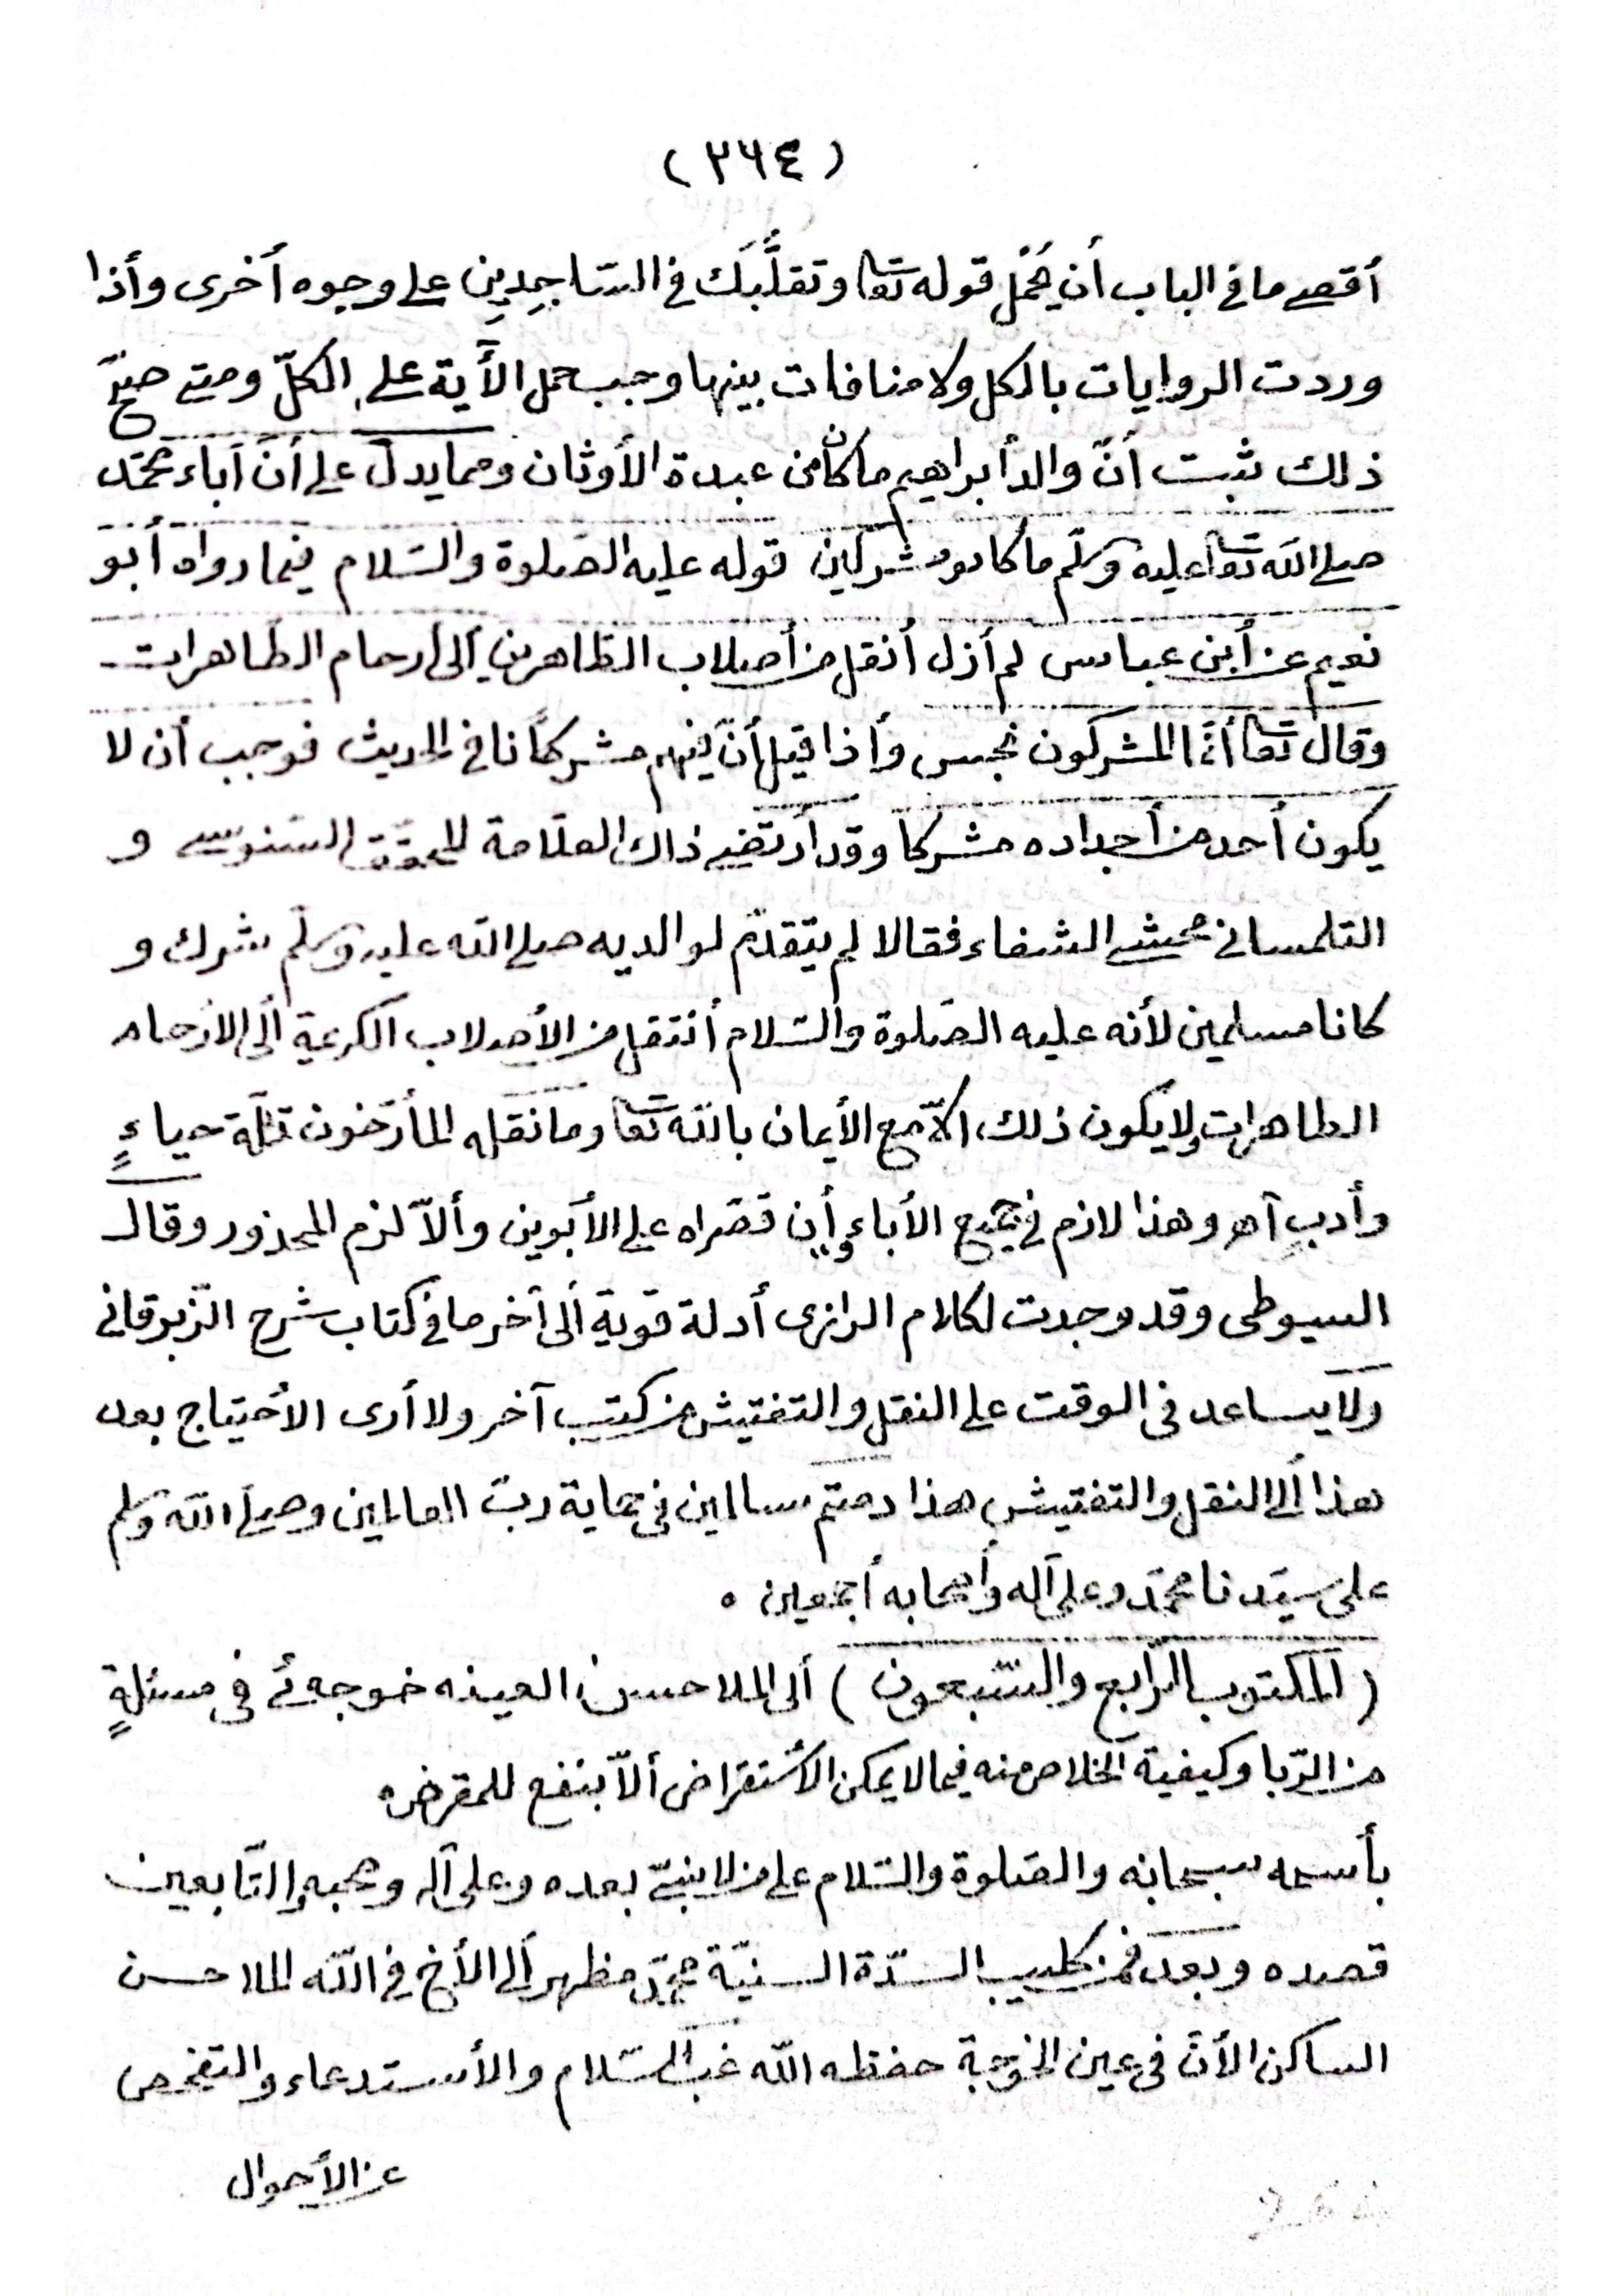 (٢٦٤)
أقصى ما في الباب أن يحمل قوله تعا وتقلّبك في السّاجِدِينِ على وجوه أخرى وأذا
وردت الروايات بالكل ولا منافات بينها وجب حمل الأية على الكلّ ومتى صحّ
ذلك ثبت أنّ والد أبراهيم ما كان من عبدة الأوثان ومما يدلّ على أنّ آباء محمّد
صلى الله تعا عليه وسلّم ما كانوا مشركين قوله عليه الصّلوة والسّلام فيما رواه أبو
نعيم عن أبن عباس لم أزل أنقل من أصلاب الطّاهرين ألى أرحام الطّاهرات
وقال تعا أنّما المشركون نجس وأذا قيل أنّ فيهم مشركاً نافى الحديث فوجب أن لا
يكون أحد من أجداده مشركاً وقد أرتضى ذاك العلّامة المحقّق السّنوسى و
التلمسانى محشى الشفاء فقالا لم يتقدّم لوالديه صلى الله عليه وسلّم شرك و
كانا مسلمين لأنه عليه الصّلوة والسّلام أنتقل من الأصلاب الكريمة ألى الأرحام
الطاهرات ولا يكون ذلك الّا مع الأيمان بالله تعا وما نقله المأرّخون قلّة حياءٍ
وأدبٍ آهـ وهذا لازم في جميع الأباء وأن قصّراه على الأبوين وألاّ لزم المحذور وقال
السيوطى وقد وجدت لكلام الرازى أدلة قوية ألى آخر ما في كتاب شرح الزّبرقانى
ولا يساعد في الوقت على النقل والتفتيش من كتب آخر ولا أرى الأحتياج بعد
هذا ألى النقل والتفتيش هذا دمتم سالمين في حماية ربّ العالمين وصلى الله وسلم
على سيّدنا محمّد وعلى آله وأصحابه أجمعين ٠
(المكتوب الرّابع والسّبعون) ألى الملا حسن العينه خوجه ئى في مسئلةٍ
من الرّبا وكيفية الخلاص منه فيما لا يمكن الأستقراض ألاّ بنفع للمقرض ه
بأسمه سبحانه والصّلوة والسّلام على من لا نبىّ بعده وعلى آله وصحبه والتّابعين
قصده وبعد فمن كليب السّدّة السنيّة محمّد مظهر ألى الأخ في الله الملا حسن
الساكن الأن في عين الخوجة حفظه الله غبّ السّلام والأستدعاء والتفحص
عن الأحوال